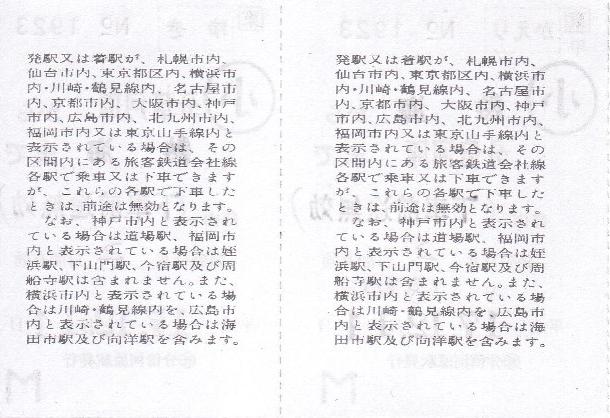 発駅又は着駅が、札幌市内、
仙台市内、東京都区内、横浜市
内・川崎・鶴見線内、名古屋市
内、京都市内、大阪市内、神戸
市内、広島市内、北九州市内、
福岡市内又は東京山手線内と
表示されている場合は、その
区間内にある旅客鉄道会社線
各駅で乗車又は下車できます
が、これらの各駅で下車した
ときは、前途は無効となります。
なお、神戸市内と表示され
ている場合は道場駅、福岡市
内と表示されている場合は姪
浜駅、下山門駅、今宿駅及び周
船寺駅は含まれません。また、
横浜市内と表示されている場
合は川崎・鶴見線内を、広島市
内と表示されている場合は海
田市駅及び向洋駅を含みます。
発駅又は着駅が、札幌市内、
仙台市内、東京都区内、横浜市
内・川崎・鶴見線内、名古屋市
内、京都市内、大阪市内、神戸
市内、広島市内、北九州市内、
福岡市内又は東京山手線内と
表示されている場合は、その
区間内にある旅客鉄道会社線
各駅で乗車又は下車できます
が、これらの各駅で下車した
ときは、前途は無効となります。
なお、神戸市内と表示され
ている場合は道場駅、福岡市
内と表示されている場合は姪
浜駅、下山門駅、今宿駅及び周
船寺駅は含まれません。また、
横浜市内と表示されている場
合は川崎・鶴見線内を、広島市
内と表示されている場合は海
田市駅及び向洋駅を含みます。